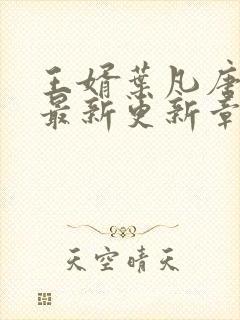 王婿葉凡唐
最新更新章
天空晴天